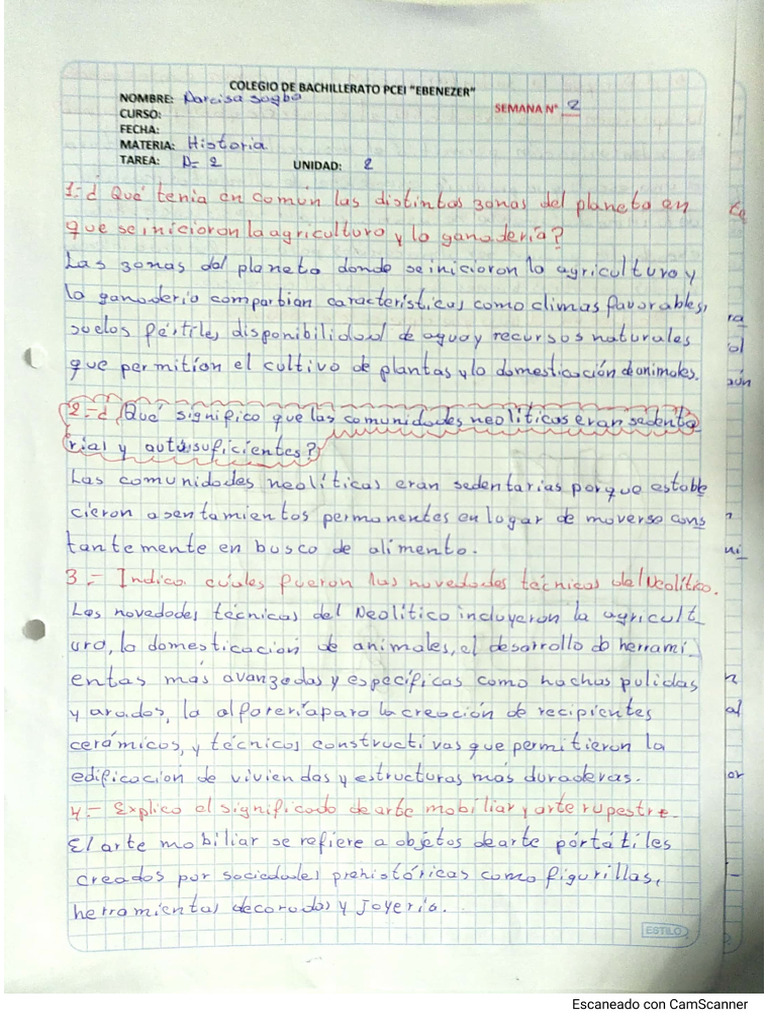 COLEGIO DE BACHILLERATO PCEI "EBENEZER"
NOMBRE: Narcisa
SEMANA N° 2
CURSO:
FECHA:
MATERIA: Historia
TAREA: D- 2 UNIDAD: 2
1.- ¿ Qué tenia en común las distintas zonas del planeta en
que se inicioron la agricultura y la ganadería?
Las zonas del planeta donde se inicioron la agricultura y
la ganaderia compartian características como climas favorables,
suelos fértiles, disponibilidad de agua y recursos naturales
que permitían el cultivo de plantas y la domesticación de animales.
2.- ¿ Qué significo que las comunidades neolíticas eran sedenta
rial y autosuficientes?
Las comunidades neolíticas eran sedentarias porque estable
cieron asentamientos permanentes en lugar de moverse cons
tantemente en busca de alimento.
3.- Indica cuáles fueron las novedades técnicas del Neolítico.
Las novedades técnicas del Neolítico incluyeron la agricult_
ura, la domesticación de animales, el desarrollo de herrami_
entas más avanzadas y específicas como hachas pulidas
y arados, la alfarería para la creación de recipientes
cerámicos, y técnicas constructivas que permitieron la
edificación de viviendas y estructuras más duraderas.
4.- Explico el significado de arte mobiliar y arte rupestre.
El arte mobiliar se refiere a objetos de arte pórtátiles
creados por sociedades prehistóricas como figurillas,
herramientas decoradas y Joyería.
ESTILO
Escaneado con CamScanner